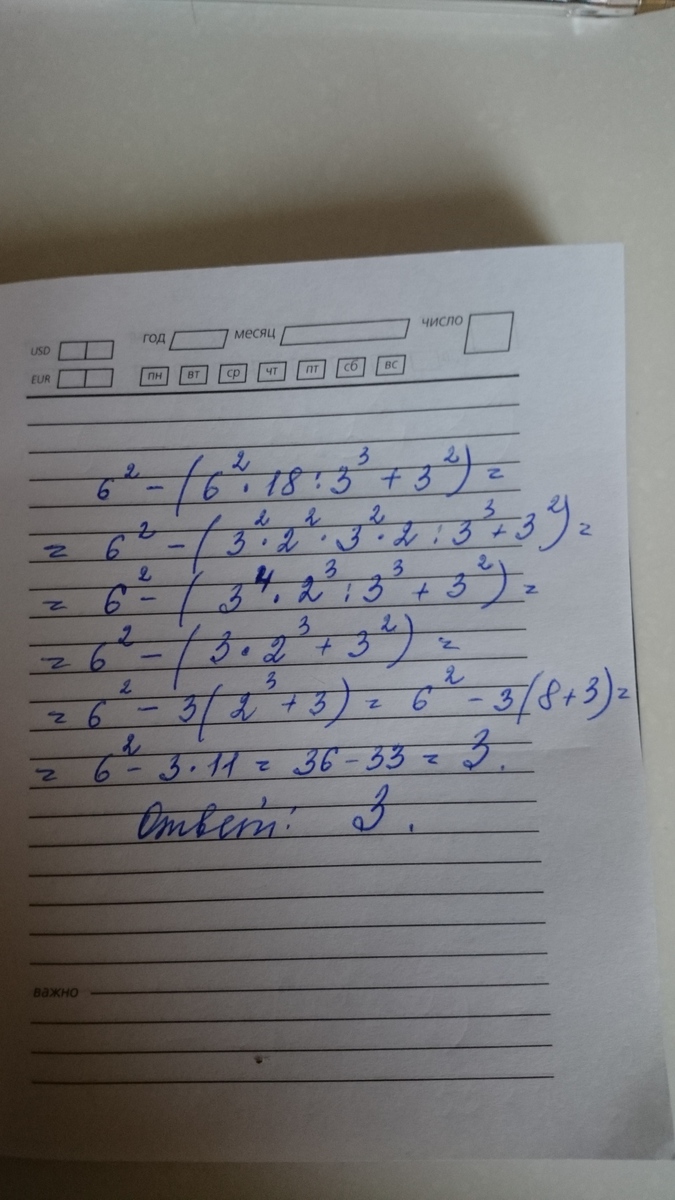 USD год месяц число
EUR пн вт ср чт пт сб вс
6² - (6² · 18 : 3³ + 3²) =
= 6² - (3² · 2² · 3² · 2 : 3³ + 3²) =
= 6² - (3⁴ · 2³ : 3³ + 3²) =
= 6² - (3 · 2³ + 3²) =
= 6² - 3(2³ + 3) = 6² - 3(8+3) =
= 6² - 3 · 11 = 36 - 33 = 3.
Ответ: 3.
важно